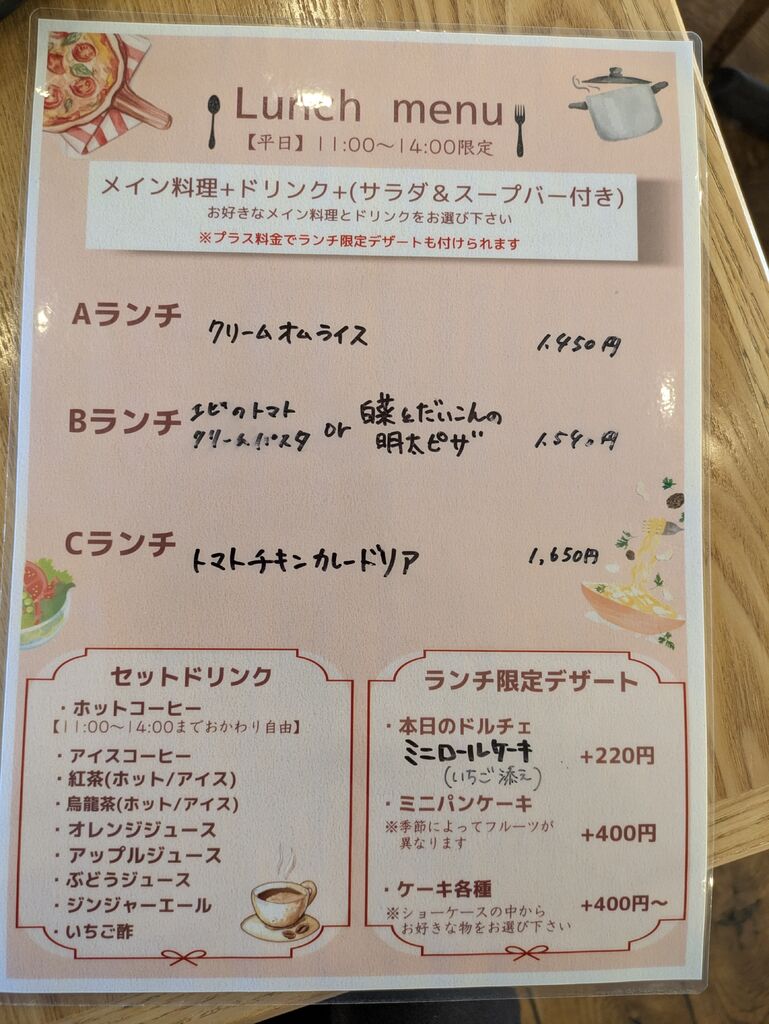 Lunch menu
【平日】11:00〜14:00限定
メイン料理+ドリンク+(サラダ＆スープバー付き)
お好きなメイン料理とドリンクをお選び下さい
※プラス料金でランチ限定デザートも付けられます
Aランチ クリームオムライス 1,450円
Bランチ エビのトマトクリームパスタ or 白菜とだいこんの明太ピザ 1,540円
Cランチ トマトチキンカレードリア 1,650円
セットドリンク
・ホットコーヒー
【11:00〜14:00までおかわり自由】
・アイスコーヒー
・紅茶(ホット/アイス)
・烏龍茶(ホット/アイス)
・オレンジジュース
・アップルジュース
・ぶどうジュース
・ジンジャーエール
・いちご酢
ランチ限定デザート
・本日のドルチェ
ミニロールケーキ +220円
(いちご添え)
・ミニパンケーキ
※季節によってフルーツが +400円
異なります
・ケーキ各種 +400円〜
※ショーケースの中から
お好きな物をお選び下さい